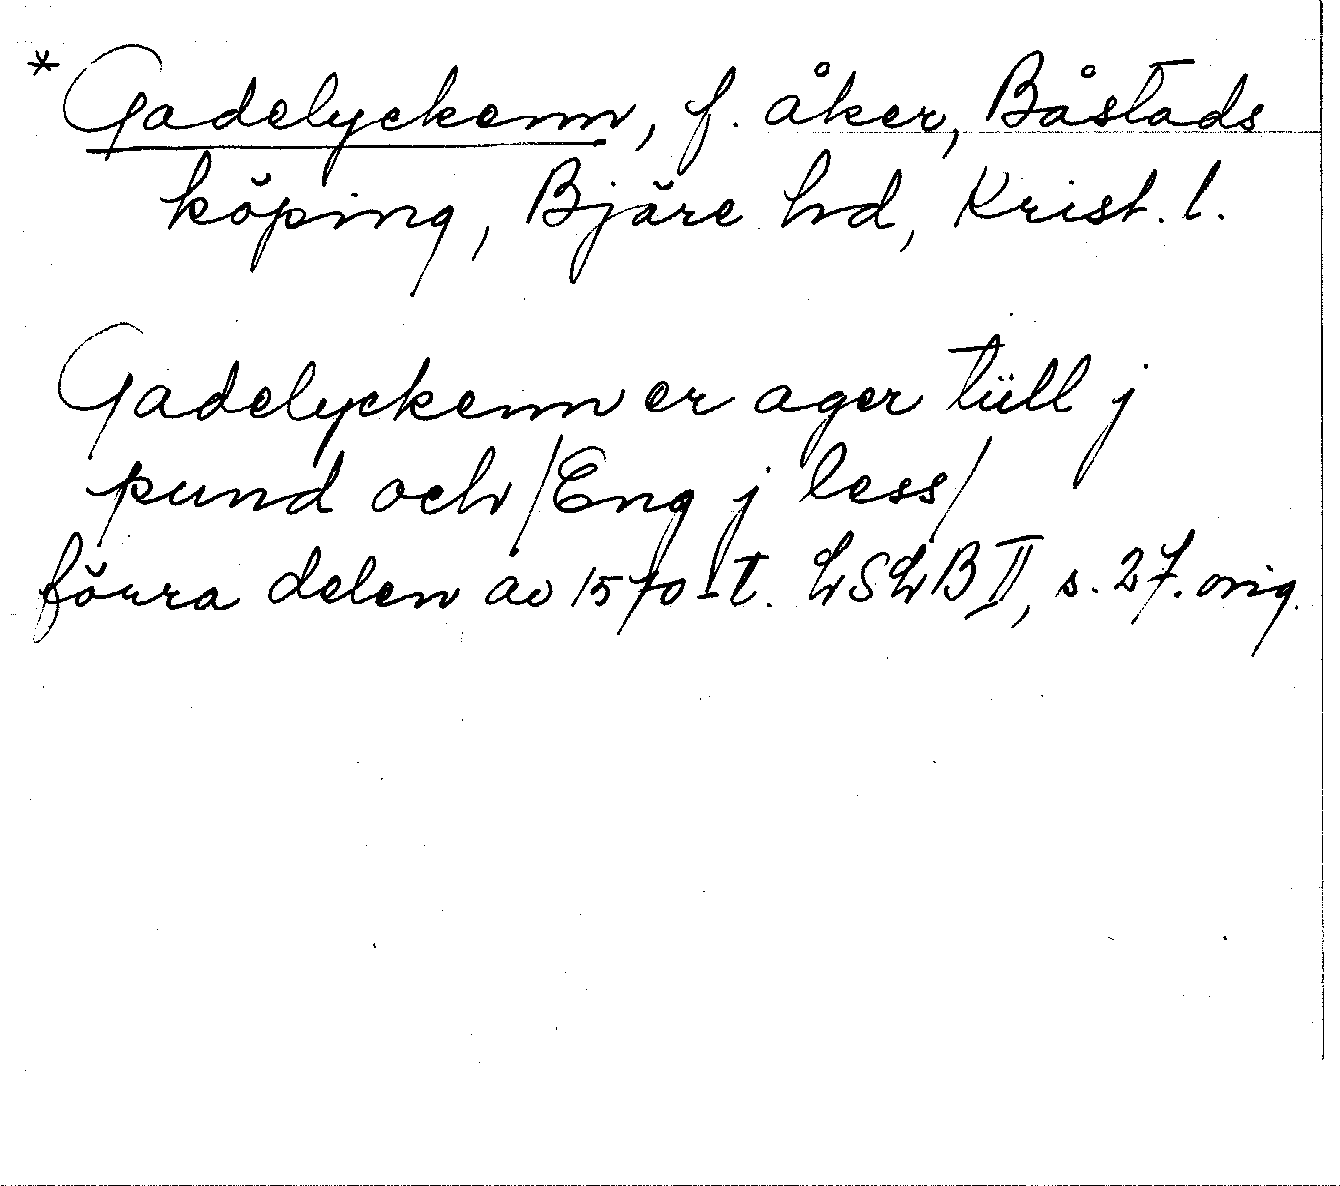 *Gadelyckenn, f. åker, Båstads
köping, Bjäre hd, Krist. l.
Gadelyckenn er ager tüll j
pund och/Eng j less/
förra delen av 1570-t. LSLB II, s. 27. orig.